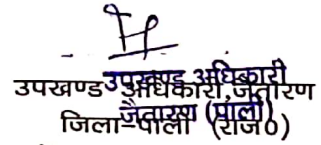 उपखण्ड अधिकारी
उपखण्ड अधिकारी, जैतारण
जैतारण (पाली)
जिला-पाली (राज0)